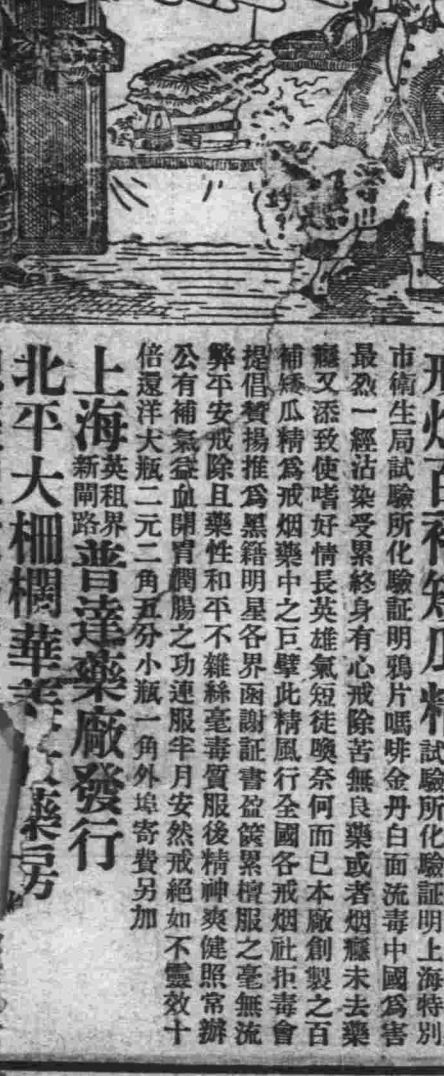 戒烟百補矮瓜精試驗所化驗証明上海特別
市衛生局試驗所化驗証明鴉片嗎啡金丹白面流毒中國爲害
最烈一經沾染受累終身有心戒除苦無良藥或者烟癮未去藥
癮又添致使嗜好情長英雄氣短徒喚奈何而已本廠創製之百
補矮瓜精爲戒烟藥中之巨擘此精風行全國各戒烟社拒毒會
提倡贊揚推爲黑籍明星各界函謝証書盈篋累櫝服之毫無流
弊平安戒除且藥性和平不雜絲毫毒質服後精神爽健照常辦
公有補氣益血開胃潤腸之功連服半月安然戒絕如不靈效十
倍還洋大瓶二元二角五分小瓶一角外埠寄費另加
上海英租界新閘路普達藥廠發行
北平大柵欄華美藥房